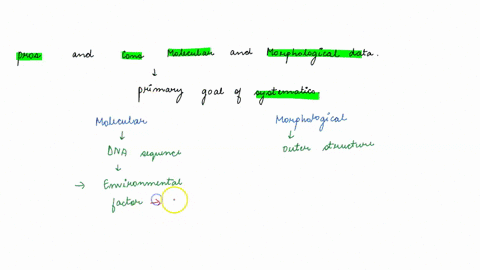 pros and Cons Molecular and Morphological data.
↓
primary goal of systematics.
Molecular Morphological
↓ ↓
DNA sequence outer structure
↓
→ Environmental
factor →